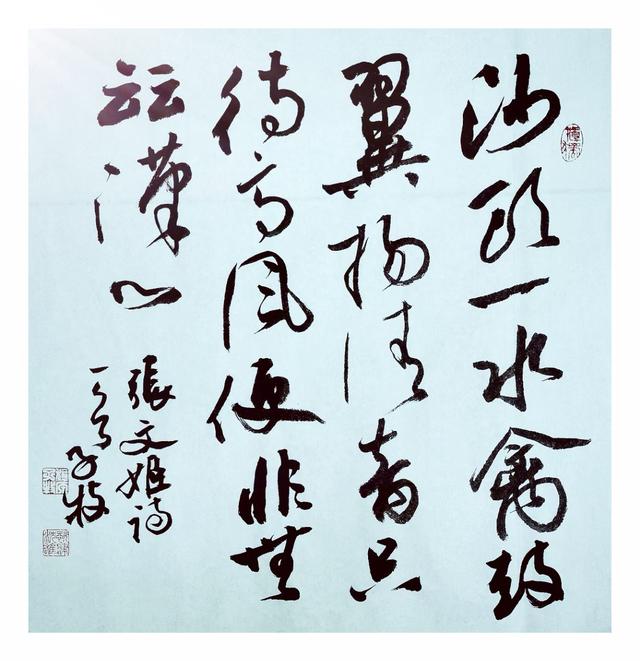 沙頭一水禽鼓
翼揚清音只
待高風便非無
雲漢心
張文姬詩
子牧